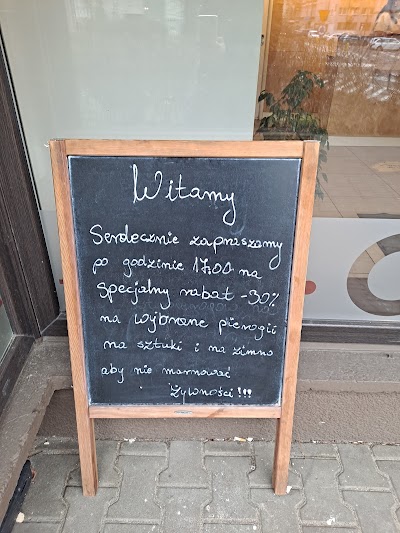 Witamy
Serdecznie zapraszamy
po godzinie 17:00 na
specjalny rabat -30%
na wybrane pierogi
na sztuki i na zimno
aby nie marnować
żywności!!!